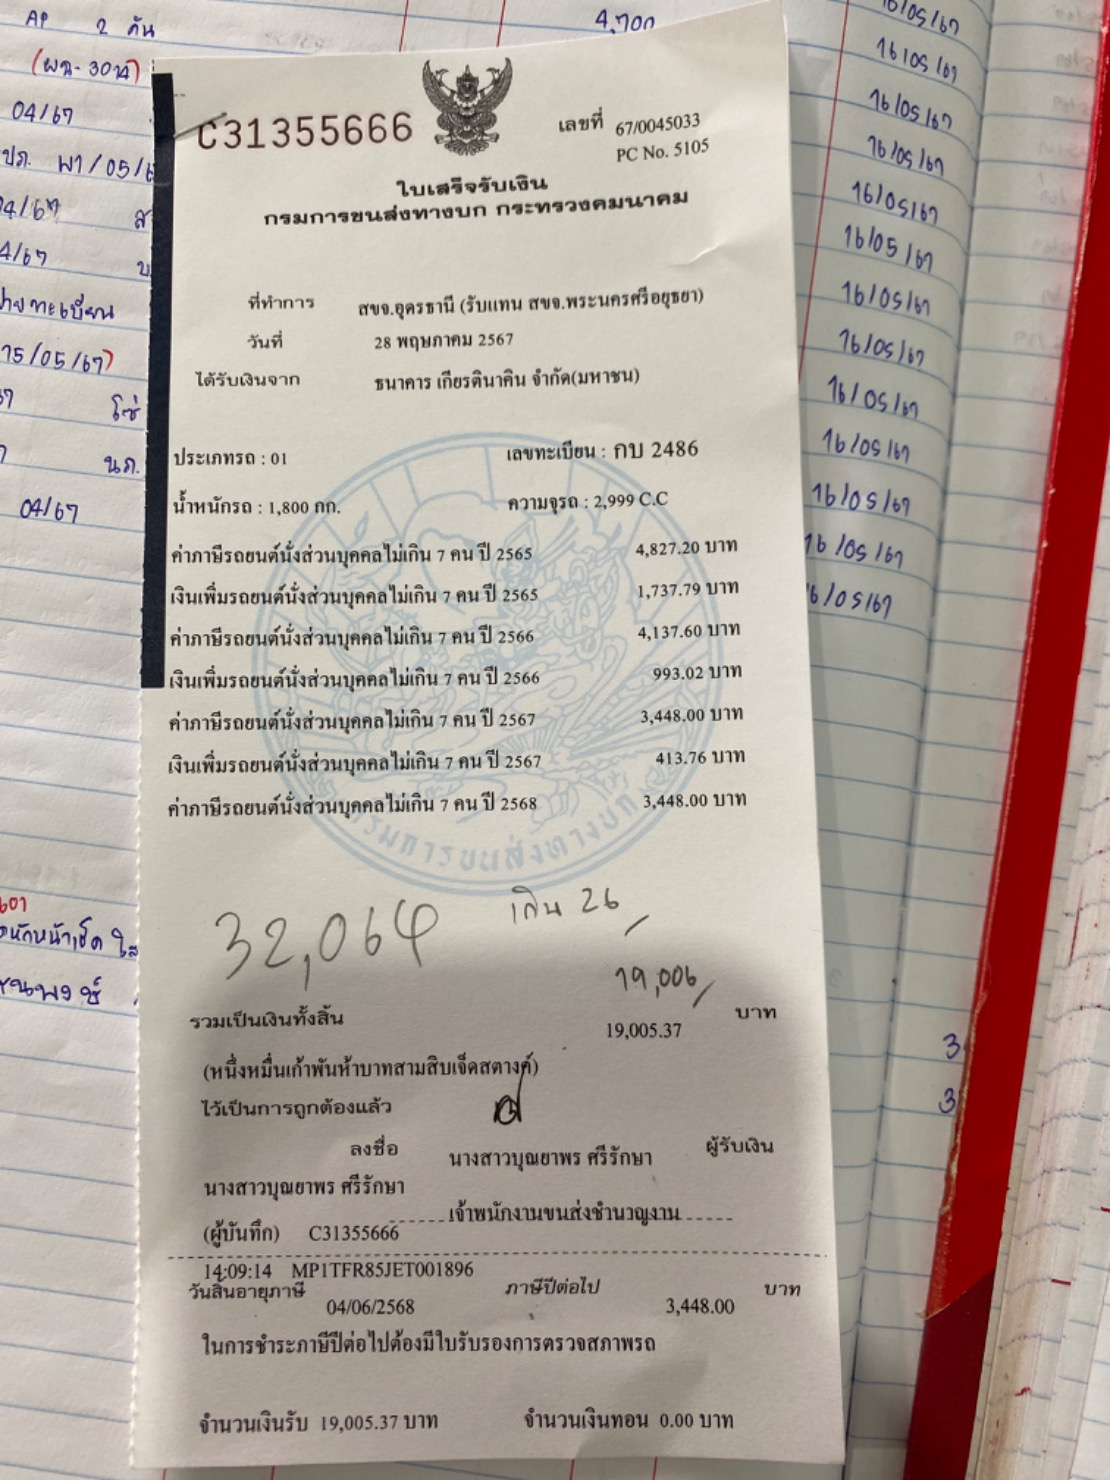 AP 2 คัน
4,700
04/67
04/67
15/05/67)
16/05/67
16/05/67
16/05/67
16/05/67
16/05/67
16/05/67
16/05/67
16/05/67
16/05/67
16/05/67
16/05/67
16/05/67
16/05/67
C31355666
เลขที่ 67/0045033
PC No. 5105
ใบเสร็จรับเงิน
กรมการขนส่งทางบก กระทรวงคมนาคม
ที่ทำการ สขจ.อุดรธานี (รับแทน สขจ.พระนครศรีอยุธยา)
วันที่ 28 พฤษภาคม 2567
ได้รับเงินจาก ธนาคาร เกียรตินาคิน จำกัด(มหาชน)
ประเภทรถ : 01 เลขทะเบียน : กบ 2486
น้ำหนักรถ : 1,800 กก. ความจุรถ : 2,999 C.C
ค่าภาษีรถยนต์นั่งส่วนบุคคลไม่เกิน 7 คน ปี 2565 4,827.20 บาท
เงินเพิ่มรถยนต์นั่งส่วนบุคคลไม่เกิน 7 คน ปี 2565 1,737.79 บาท
ค่าภาษีรถยนต์นั่งส่วนบุคคลไม่เกิน 7 คน ปี 2566 4,137.60 บาท
เงินเพิ่มรถยนต์นั่งส่วนบุคคลไม่เกิน 7 คน ปี 2566 993.02 บาท
ค่าภาษีรถยนต์นั่งส่วนบุคคลไม่เกิน 7 คน ปี 2567 3,448.00 บาท
เงินเพิ่มรถยนต์นั่งส่วนบุคคลไม่เกิน 7 คน ปี 2567 413.76 บาท
ค่าภาษีรถยนต์นั่งส่วนบุคคลไม่เกิน 7 คน ปี 2568 3,448.00 บาท
กรมการขนส่งทางบก
32,064 เกิน 26
19,006
รวมเป็นเงินทั้งสิ้น 19,005.37 บาท
(หนึ่งหมื่นเก้าพันห้าบาทสามสิบเจ็ดสตางค์)
ไว้เป็นการถูกต้องแล้ว
ลงชื่อ นางสาวบุณยาพร ศรีรักษา ผู้รับเงิน
นางสาวบุณยาพร ศรีรักษา
เจ้าพนักงานขนส่งชำนาญงาน
(ผู้บันทึก) C31355666
14:09:14 MP1TFR85JET001896
วันสิ้นอายุภาษี 04/06/2568 ภาษีปีต่อไป 3,448.00 บาท
ในการชำระภาษีปีต่อไปต้องมีใบรับรองการตรวจสภาพรถ
จำนวนเงินรับ 19,005.37 บาท จำนวนเงินทอน 0.00 บาท